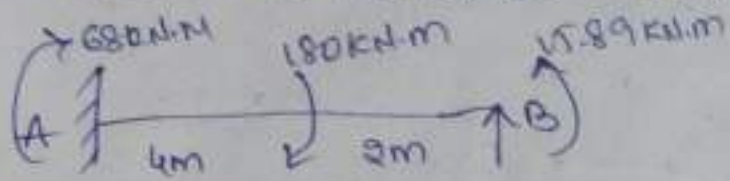 68KN.M 180KN.m 15.89KN.m
A B
4m 2m